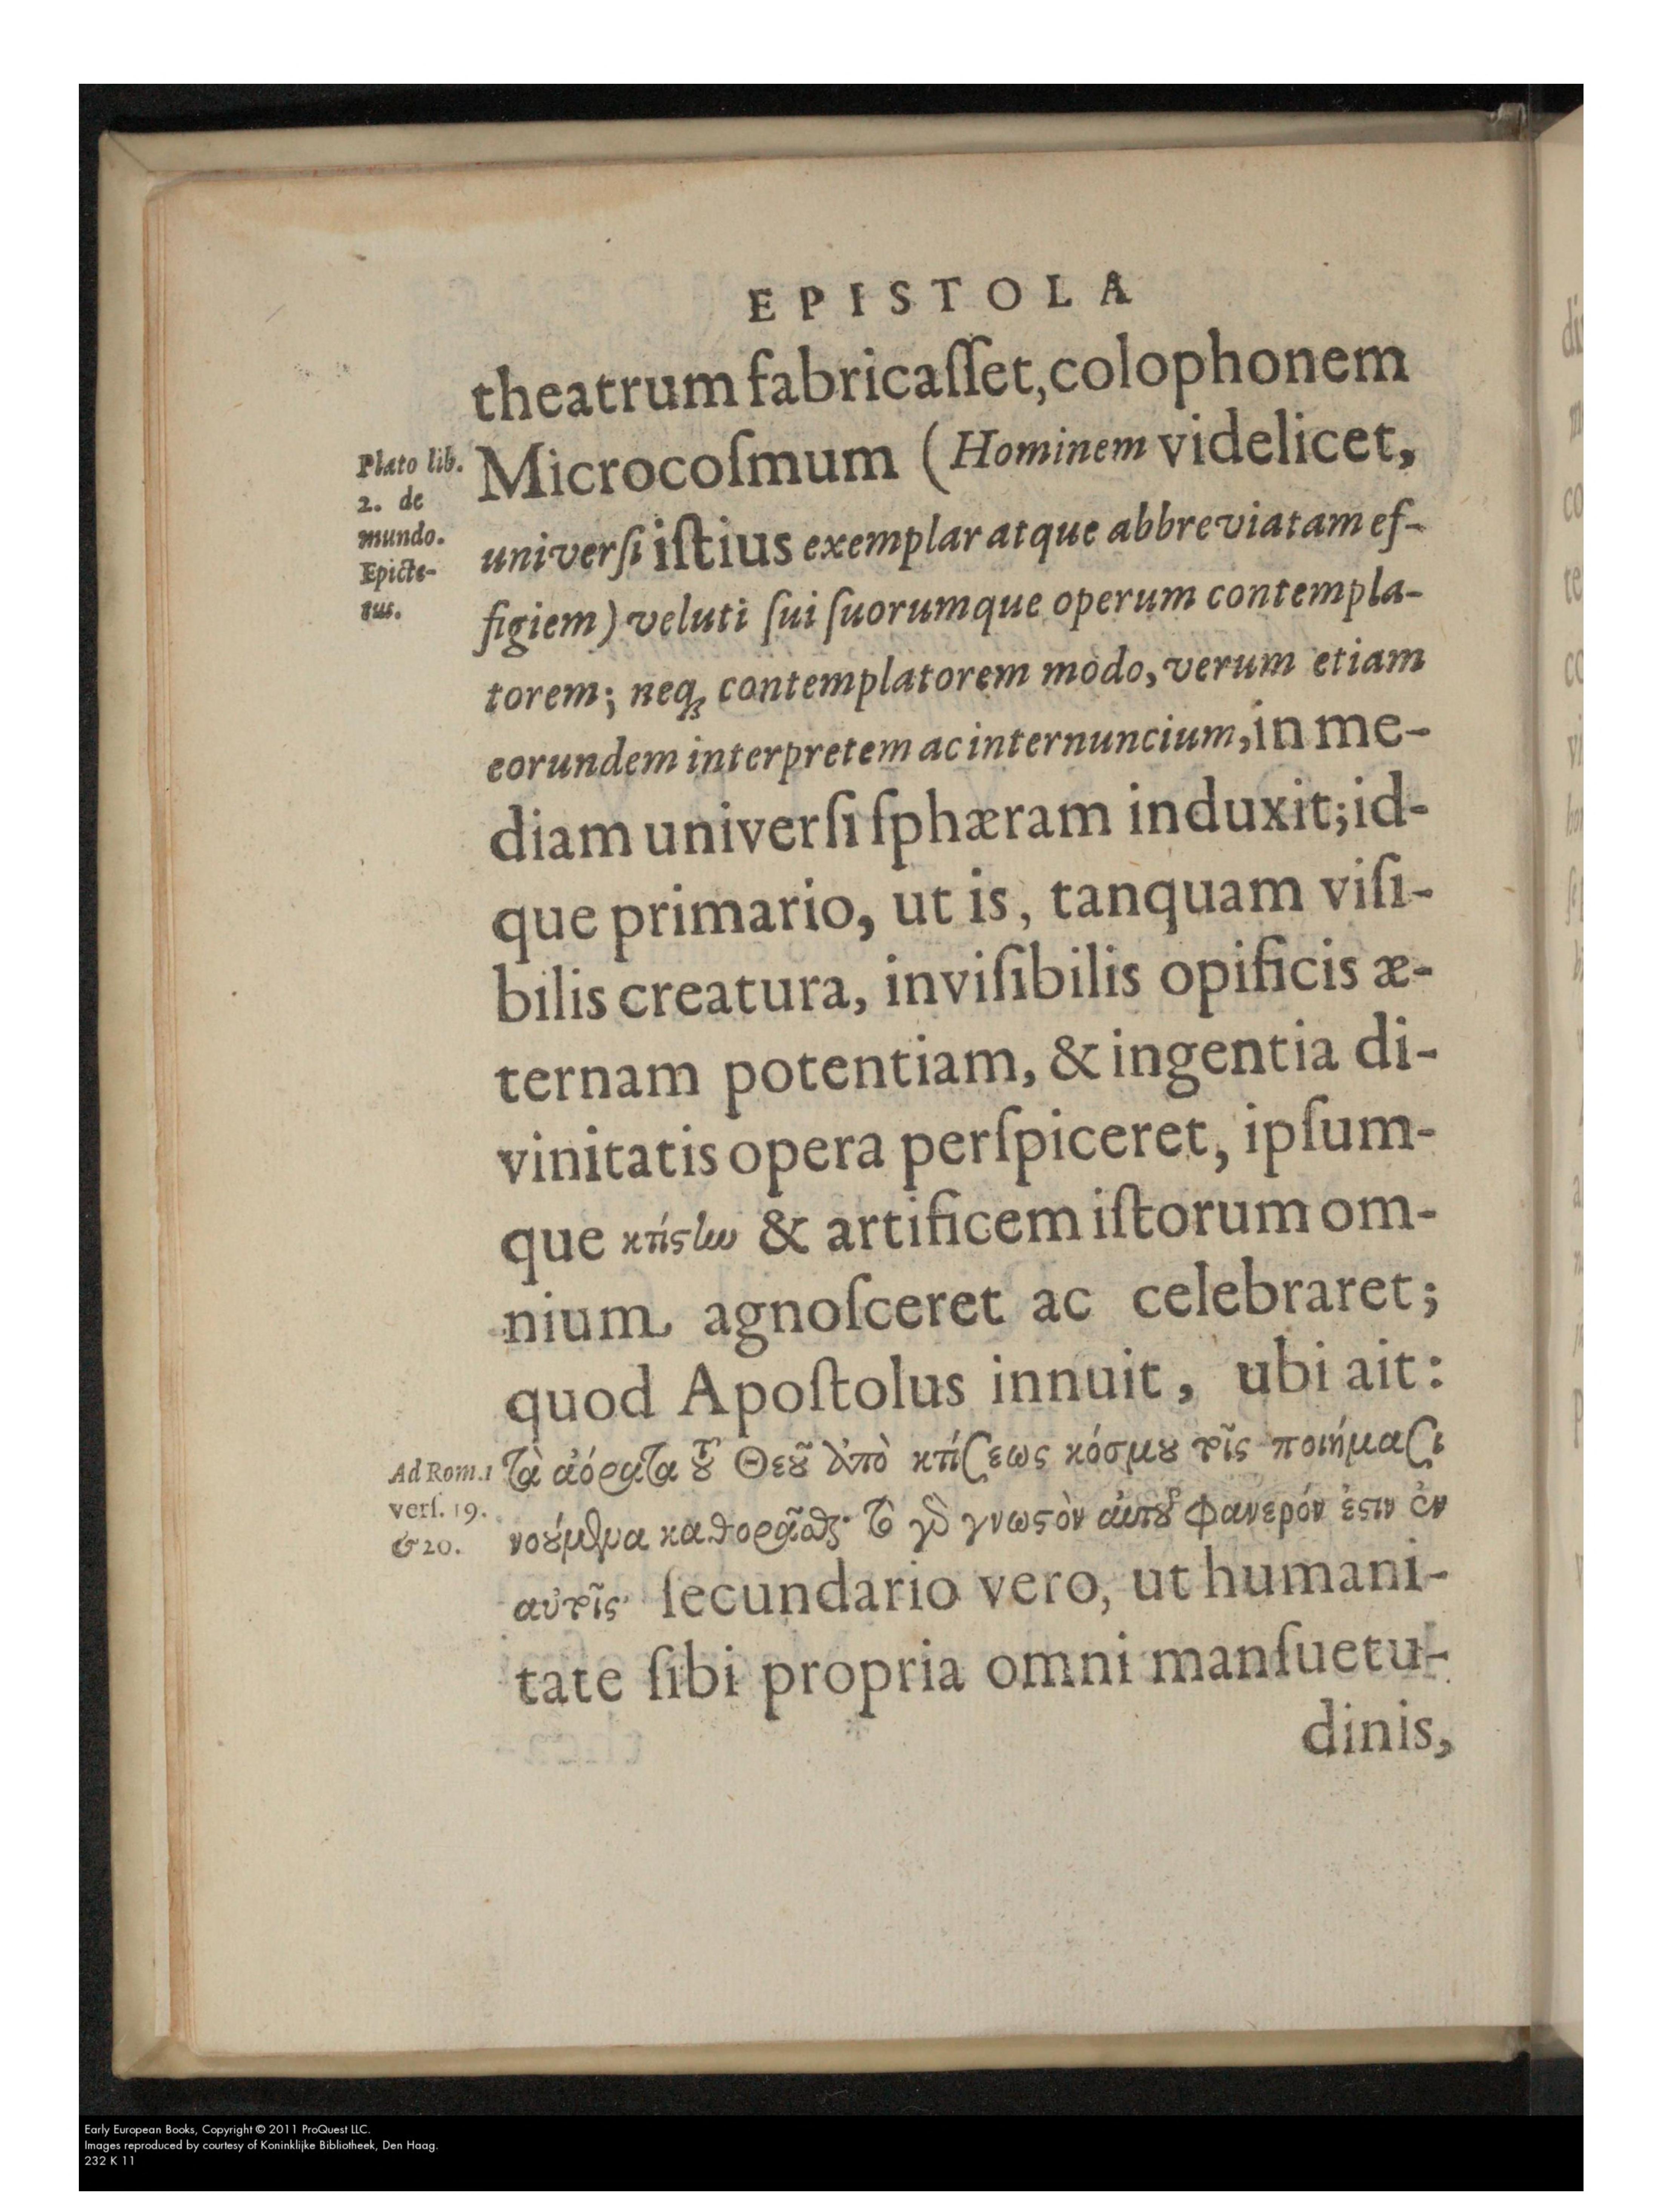 EPISTOLA
theatrum fabricaſſet, colophonem
Microcoſmum (Hominem videlicet,
univerſi iſtius exemplar atque abbreviatam ef-
figiem) veluti ſui ſuorumque operum contempla-
torem; neq; contemplatorem modo, verum etiam
eorundem interpretem ac internuncium, in me-
diam univerſi ſphæram induxit; id-
que primario, ut is, tanquam viſi-
bilis creatura, inviſibilis opificis æ-
ternam potentiam, & ingentia di-
vinitatis opera perſpiceret, ipſum-
que κτίστην & artificem iſtorum om-
nium agnoſceret ac celebraret;
quod Apoſtolus innuit, ubi ait:
τὰ ἀόρατα τοῦ Θεοῦ ἀπὸ κτίσεως κόσμου τοῖς ποιήμασι
νοούμενα καθορᾶται· τὸ γὰρ γνωστὸν αὐτοῦ φανερόν ἐστιν ἐν
αὐτοῖς· ſecundario vero, ut humani-
tate ſibi propria omni manſuetu-
dinis,
Plato lib.
2. de
mundo.
Epicte-
tus.
Ad Rom. 1
verſ. 19.
& 20.
Early European Books, Copyright © 2011 ProQuest LLC.
Images reproduced by courtesy of Koninklijke Bibliotheek, Den Haag.
232 K 11